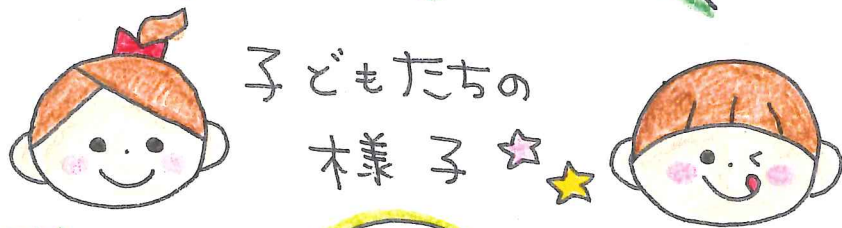 子どもたちの
様子